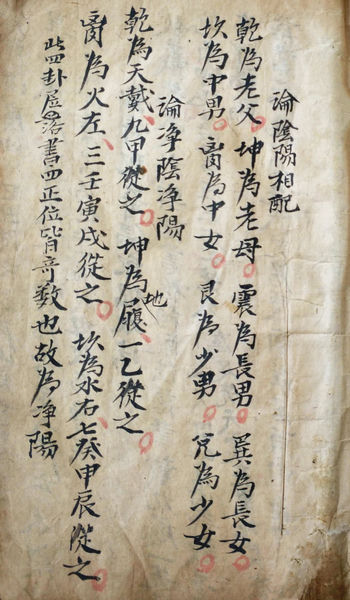 論陰陽相配
乾為老父。坤為老母。震為長男。巽為長女。
坎為中男。离為中女。艮為少男。兌為少女。
論净陰净陽
乾為天戴九甲從之。坤為地履一乙從之。
离為火左三壬寅戌從之。坎為水右七癸申辰從之。
此四卦居洛書四正位皆竒数也故為净陽